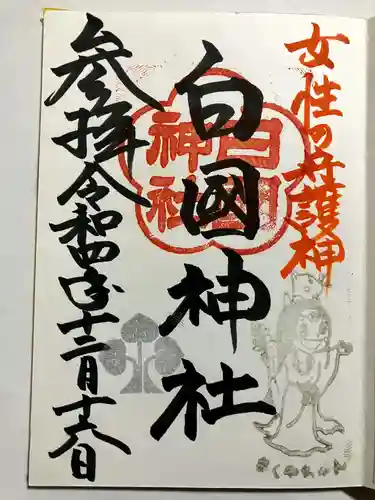 女性の守護神
白國神社
白国
神社
参拝令和四年十二月十六日
さくやちゃん